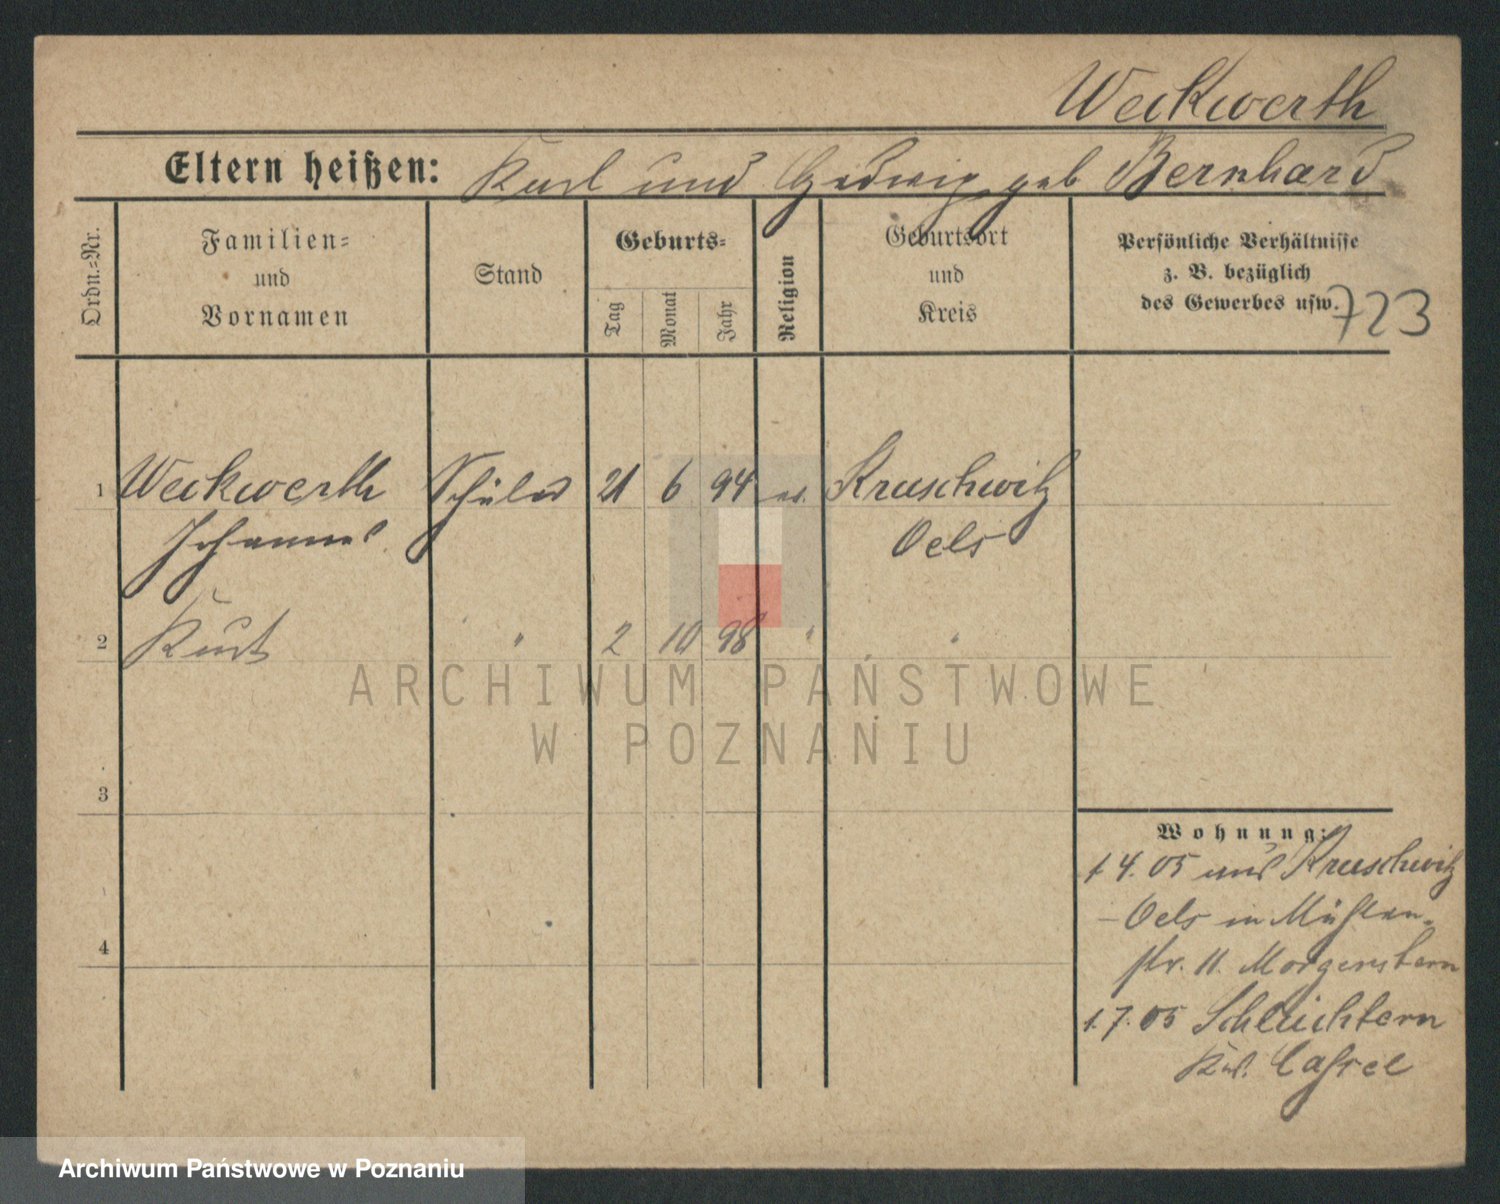 Weckwerth
Eltern heißen: Karl und Hedwig geb Bernhard
Ordn.=Nr.
Familien=
und
Vornamen
Stand
Geburts=
Tag
Monat
Jahr
Religion
Geburtsort
und
Kreis
Persönliche Verhältnisse
z. B. bezüglich
des Gewerbes usw.
723
1 Weckwerth Schüler 21 6 94 ev. Kruschwitz
Johannes Oels
2 Kurt " " 2 10 98 " "
ARCHIWUM PAŃSTWOWE
W POZNANIU
3
4
Wohnung:
1.4.05 aus Kruschwitz
- Oels in Mühlen-
str. 11. Morgenstern
1.7.05 Schlüchtern
Cassel
Archiwum Państwowe w Poznaniu